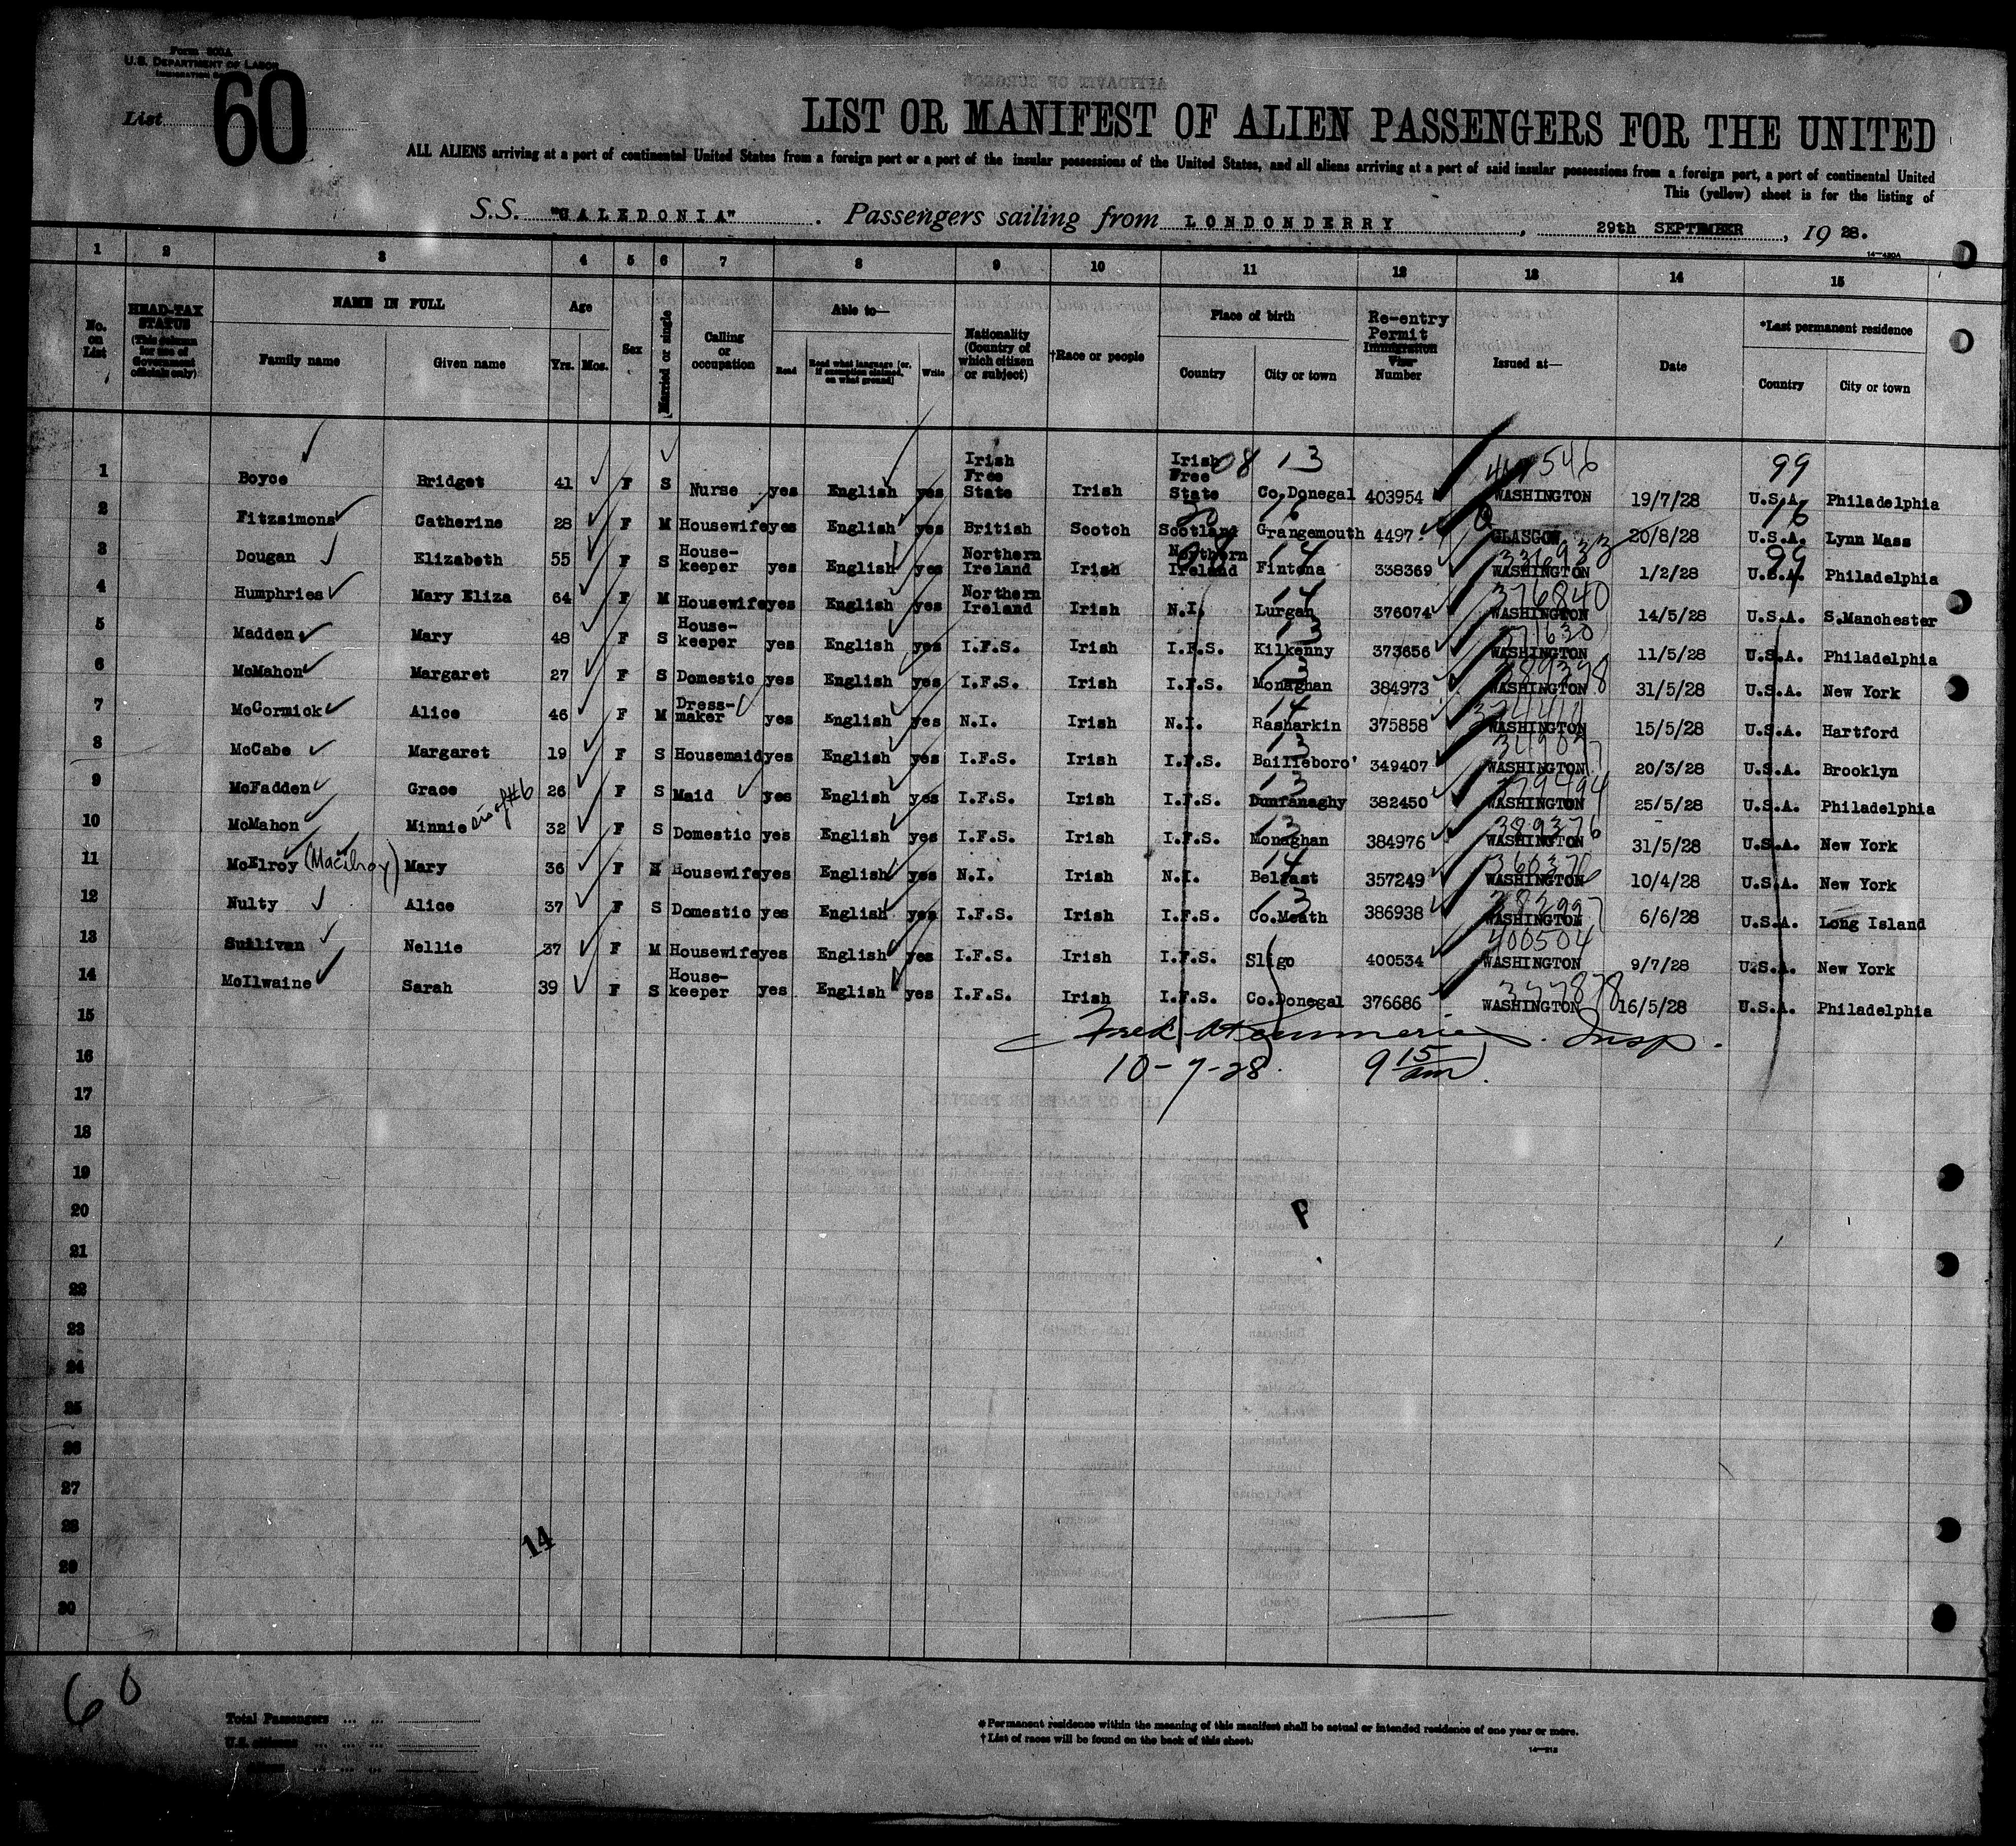 Form 500A
U.S. DEPARTMENT OF LABOR
List 60
LIST OR MANIFEST OF ALIEN PASSENGERS FOR THE UNITED
ALL ALIENS arriving at a port of continental United States from a foreign port or a port of the insular possessions of the United States, and all aliens arriving at a port of said insular possessions from a foreign port, a port of continental United
This (yellow) sheet is for the listing of
S.S. "CALEDONIA". Passengers sailing from LONDONDERRY, 29th SEPTEMBER, 19 28.
14-420A
1 2 3 4 5 6 7 8 9 10 11 12 13 14 15
No. on List HEAD-TAX STATUS (This column for use of Government officials only) NAME IN FULL Family name Given name Age Yrs. Mos. Sex Married or single Calling or occupation Able to— Read Read what language [or, if exemption claimed, on what ground] Write Nationality (Country of which citizen or subject) †Race or people Place of birth Country City or town Re-entry Permit Immigration Visa Number Issued at— Date *Last permanent residence Country City or town
1 Boyce Bridget 41 F S Nurse yes English yes Irish Free State Irish Irish Free State 08 13 Co.Donegal 403954 WASHINGTON 19/7/28 99 U.S.A. Philadelphia
2 Fitzsimons Catherine 28 F M Housewife yes English yes British Scotch Scotland Grangemouth 4497 GLASGOW 20/8/28 16 U.S.A. Lynn Mass
3 Dougan Elizabeth 55 F S House-keeper yes English yes Northern Ireland Irish Northern Ireland 14 Fintona 338369 WASHINGTON 1/2/28 99 U.S.A. Philadelphia
4 Humphries Mary Eliza 64 F M Housewife yes English yes Northern Ireland Irish N.I. 14 Lurgan 376074 376840 WASHINGTON 14/5/28 U.S.A. S.Manchester
5 Madden Mary 48 F S House-keeper yes English yes I.F.S. Irish I.F.S. 13 Kilkenny 373656 371630 WASHINGTON 11/5/28 U.S.A. Philadelphia
6 McMahon Margaret 27 F S Domestic yes English yes I.F.S. Irish I.F.S. 13 Monaghan 384973 389378 WASHINGTON 31/5/28 U.S.A. New York
7 McCormick Alice 46 F M Dress-maker yes English yes N.I. Irish N.I. 14 Rasharkin 375858 WASHINGTON 15/5/28 U.S.A. Hartford
8 McCabe Margaret 19 F S Housemaid yes English yes I.F.S. Irish I.F.S. 13 Bailieboro' 349407 WASHINGTON 20/3/28 U.S.A. Brooklyn
9 McFadden Grace 26 F S Maid yes English yes I.F.S. Irish I.F.S. 13 Dunfanaghy 382450 379494 WASHINGTON 25/5/28 U.S.A. Philadelphia
10 McMahon Minnie sis of #6 32 F S Domestic yes English yes I.F.S. Irish I.F.S. 13 Monaghan 384976 389376 WASHINGTON 31/5/28 U.S.A. New York
11 McElroy (Macilroy) Mary 36 F M Housewife yes English yes N.I. Irish N.I. 14 Belfast 357249 360370 WASHINGTON 10/4/28 U.S.A. New York
12 Nulty Alice 37 F S Domestic yes English yes I.F.S. Irish I.F.S. 13 Co.Meath 386938 382997 WASHINGTON 6/6/28 U.S.A. Long Island
13 Sullivan Nellie 37 F M Housewife yes English yes I.F.S. Irish I.F.S. Sligo 400534 400504 WASHINGTON 9/7/28 U.S.A. New York
14 McIlwaine Sarah 39 F S House-keeper yes English yes I.F.S. Irish I.F.S. Co.Donegal 376686 377878 WASHINGTON 16/5/28 U.S.A. Philadelphia
15 Fred Insp.
16 10-7-28. 9 15 am.
17
18
19
20
21
22
23
24
25
26
27
28
14
29
30
60
Total Passengers
U.S. citizens
*Permanent residence within the meaning of this manifest shall be actual or intended residence of one year or more.
†List of races will be found on the back of this sheet.